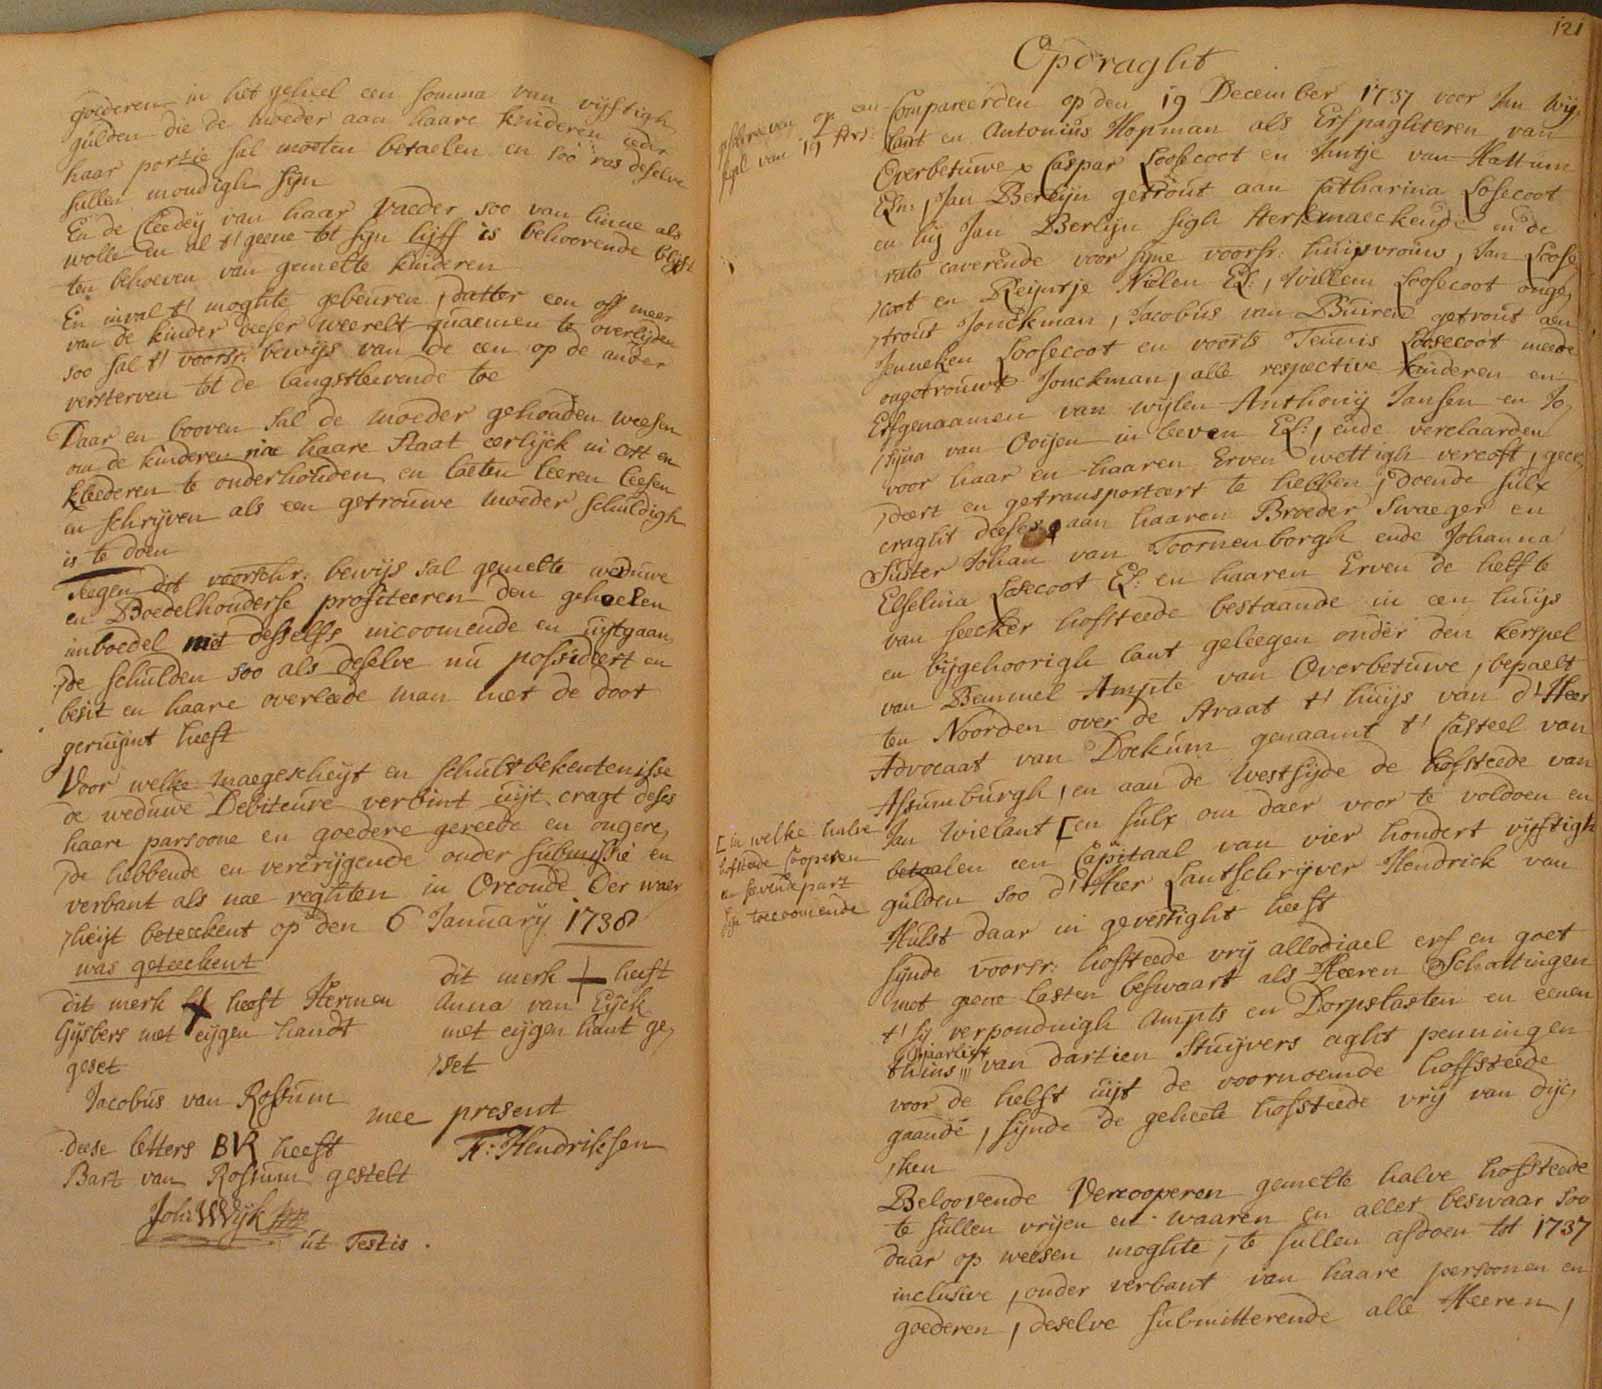 goederen in het geheel een somma van vijftigh
gulden die de moeder aan haare kinderen ieder
haar portie sal moeten betaelen en soo ras deselve
sullen mondigh sijn
En de Cleedeij van haar Vaeder soo van linne als
wolle en al t' geene tot sijn lijff is behoorende blijft
ten behoeven van gemelte kinderen
En inval t' moghte gebeuren, datter een off meer
van de kinder deeser weerelt quaemen te overlijden
soo sal t' voorsr: bewijs van de een op de ander
versterven tot de langstleevende toe
Daar en booven sal de moeder gehouden weesen
om de kinderen nae haare Staat eerlijck in cost en
kleederen te onderhouden en laeten leeren leesen
en schrijven als een getrouwe moeder schuldigh
is te doen
Teegen dit voorschr: bewijs sal gemelte weduwe
en Boedelhouderse profiteeren den geheelen
inboedel met desselfs incoomende en uijtgaan,
,de schulden soo als deselve nu possideert en
besit en haare overleede man met de doot
geruijmt heeft
Voor welke maegescheijt en schultbekentenisse
de weduwe Debiteure verbint uijt cragt deses
haare parsoone en goedere gereede en ongere,
,de hebbende en vercrijgende onder submissie en
verbant als nae reghten in Orconde Der waer
,heijt beteeckent op den 6 January 1738
was geteeckent
dit merk heeft Hermen
Gijsbers met eijgen handt
geset
dit merk heeft
Anna van Eijck
met eijgen hant ge,
,set
Jacobus van Rossum
mee present
deese letters BVR heeft
Bart van Rossum gestelt
H: Hendriksen
Joh: W Wijk
ut Testis.
121
Opdraght
geschreven op een
segel van 19 strs:
Compareerden op den 19 December 1737 voor Jan Wij,
lant en Antonius Hopman als Erfpaghteren van
Overbetuwe Caspar Loosecoot en Jantje van Hattum
Eln:, Jan Berlijn getrout aan Catharina Losecoot
en hij Jan Berlijn sigh sterkmaeckende en de
rato caverende voor sijne voorsr: huijsvrouw, Jan Loose
,coot en Reijntje Nielen El:, Willem Loosecoot onge,
,trout Jonckman, Jacobus van Buiren getrout aen
Jenneken Loosecoot en voorts Teunis Loosecoot meede
ongetrouwt Jonckman, alle respective kinderen en
Erfgenaamen van wijlen Anthonij Jansen en Jo,
,sijna van Ooijen in leeven El:, ende verclaarden
voor haar en haaren Erven wettigh vercoft, gece,
,deert en getransporteert te hebben, doende sulx
craght deeses aan haaren Broeder Swaeger en
Suster Johan van Toornenborgh ende Johanna
Elselina Losecoot El: en haaren Erven de helfte
van seecker hofsteede bestaande in een huijs
en bijgehoorigh lant geleegen onder den kerspel
van Bemmel Ampte van Overbetuwe, bepaelt
ten Noorden over de straat t' huijs van d' Heer
Advocaat van Dockum genaamt t' Casteel van
Assumburgh, en aan de Westsijde de hofsteede van
Jan Wielant [en sulx om daer voor te voldoen en
[in welke halve
hofsteede Cooperen
een sevende part
sijn toecoomende
betaalen een Capitaal van vier hondert vijftigh
gulden soo d' Heer Lantschrijver Hendrick van
Hulst daar in gevestight heeft
sijnde voorsr: hofsteede vrij allodiael erf en goet
met geene lasten beswaart als Heeren Schattingen
t' sij verpondnigh Ampts en Dorpslasten en eenen
jaarlixe
thins van dartien Stuijvers aght penningen
voor de helft uijt de voornoemde hoffsteede
gaande, sijnde de geheele hofsteede vrij van dijc,
,ken
Beloovende Vercooperen gemelte halve hofsteede
te sullen vrijen en waaren en aller beswaar soo
daar op weesen moghte, te sullen afdoen tot 1737
inclusive, onder verbant van haare persoonen en
goederen, deselve submitterende alle Heeren,